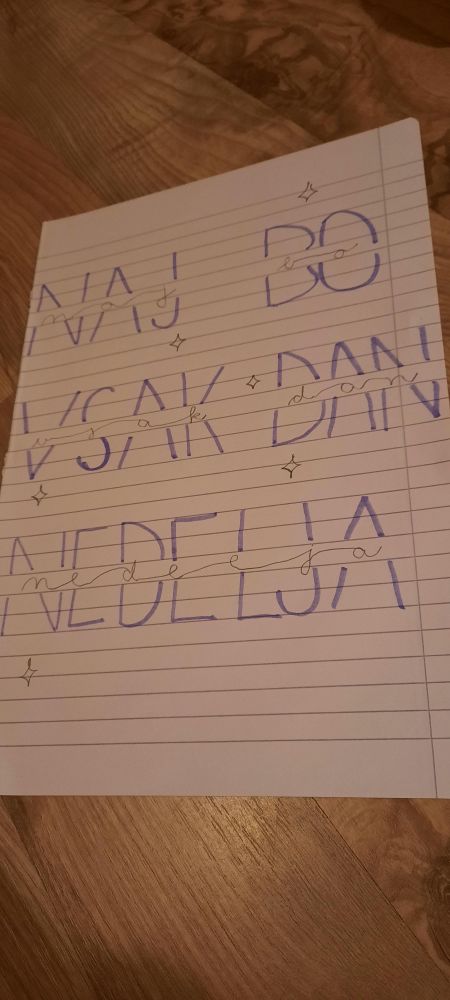 NAJ BO
naj bo
VSAK DAN
vsak dan
NEDELJA
nedelja